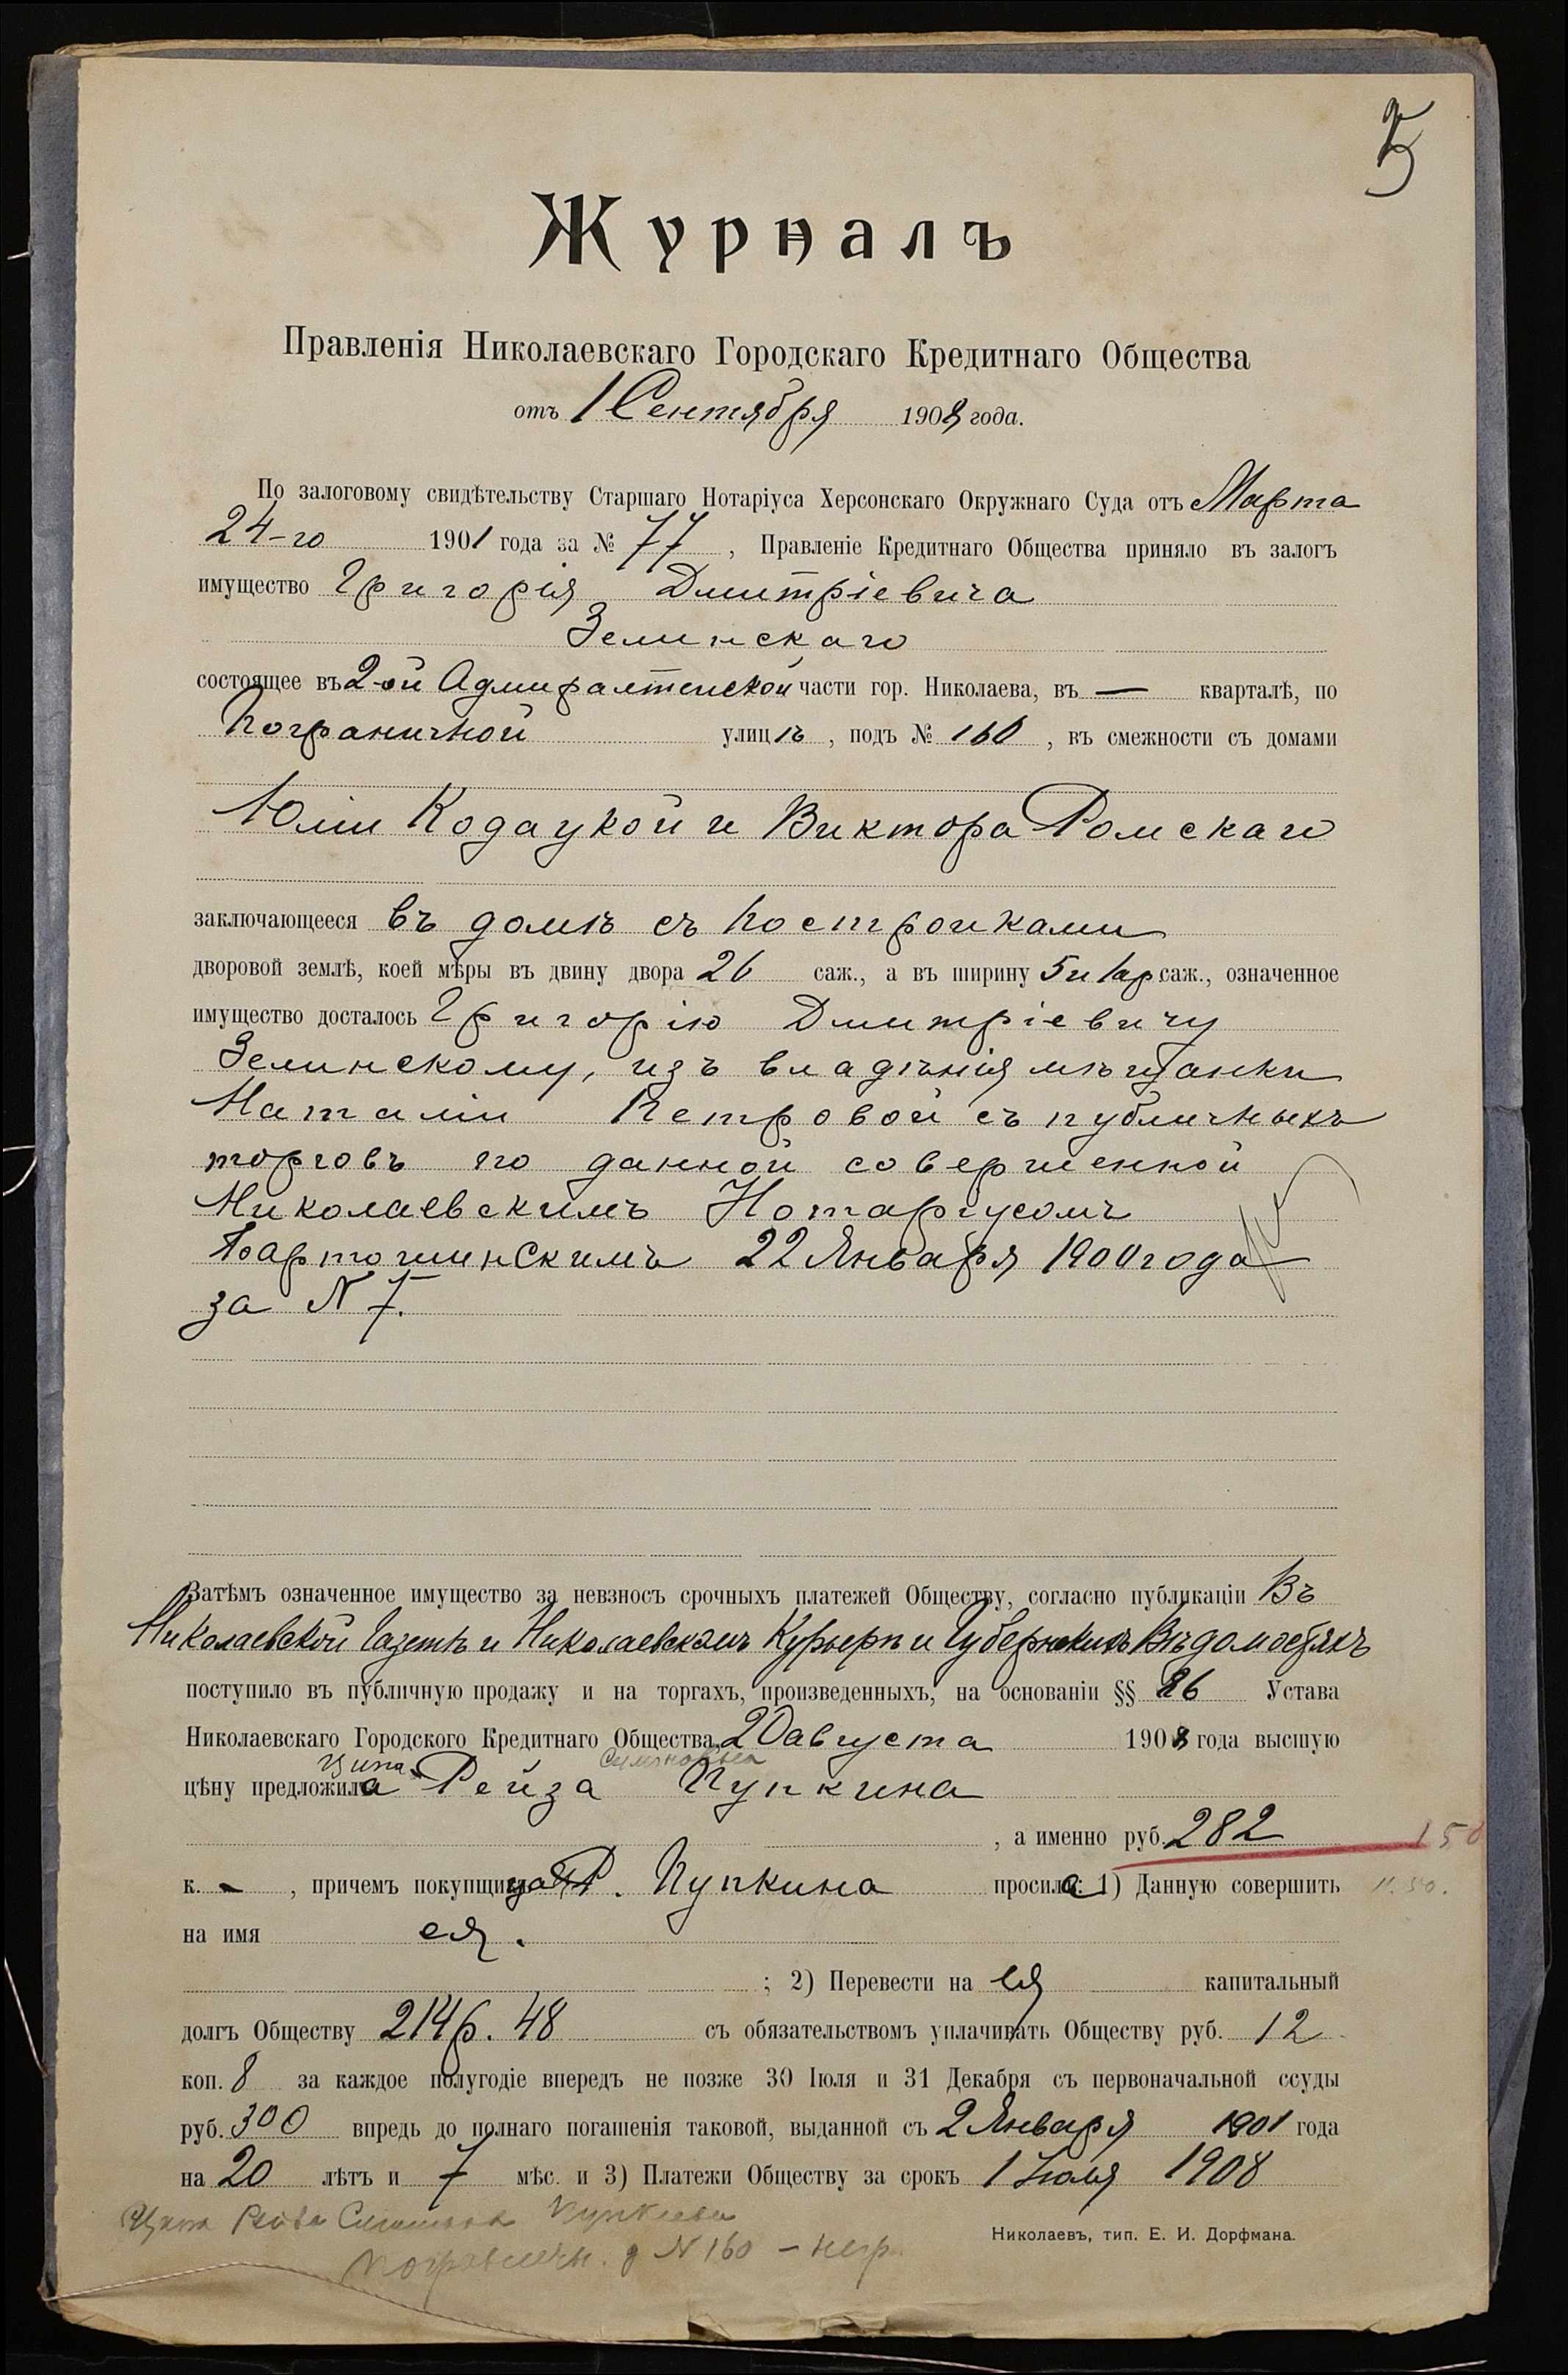 5
Журналъ
Правленія Николаевскаго Городскаго Кредитнаго Общества
отъ 1 Сентября 1908 года.
По залоговому свидѣтельству Старшаго Нотаріуса Херсонскаго Окружнаго Суда отъ Марта
24-го 1901 года за № 77, Правленіе Кредитнаго Общества приняло въ залогъ
имущество Григорія Дмитріевича
Зелинскаго
состоящее въ 2-ой Адмиралтейской части гор. Николаева, въ — кварталѣ, по
Пограничной улицѣ, подъ № 160, въ смежности съ домами
Юліи Кодацкой и Виктора Ромскаго
заключающееся въ домѣ съ постройками
дворовой землѣ, коей мѣры въ двину двора 26 саж., а въ ширину 5 и 1 ар саж., означенное
имущество досталось Григорію Дмитріевичу
Зелинскому, изъ владѣнія мѣщанки
Наталіи Петровой съ публичныхъ
торговъ по данной совершенной
Николаевскимъ Нотаріусомъ
Бартошинскимъ 22 Января 1900 года
за N 7.
Затѣмъ означенное имущество за невзносъ срочныхъ платежей Обществу, согласно публикаціи Въ
Николаевской Газетѣ и Николаевскомъ Курьерѣ и Губернскихъ Вѣдомостяхъ
поступило въ публичную продажу и на торгахъ, произведенныхъ, на основаніи §§ 26 Устава
Николаевскаго Городского Кредитнаго Общества, 20 августа 1908 года высшую
Ципа
цѣну предложила Рейза Пупкина
, а именно руб. 282 150
к. -, причемъ покупщица Р. Пупкина просила: 1) Данную совершить
на имя ея.
; 2) Перевести на ея капитальный
долгъ Обществу 214 р. 48 съ обязательствомъ уплачивать Обществу руб. 12
коп. 8 за каждое полугодіе впередъ не позже 30 Іюля и 31 Декабря съ первоначальной ссуды
руб. 300 впредь до полнаго погашенія таковой, выданной съ 2 Января 1901 года
на 20 лѣтъ и 7 мѣс. и 3) Платежи Обществу за срокъ 1 Іюля 1908
Николаевъ, тип. Е. И. Дорфмана.
N 160